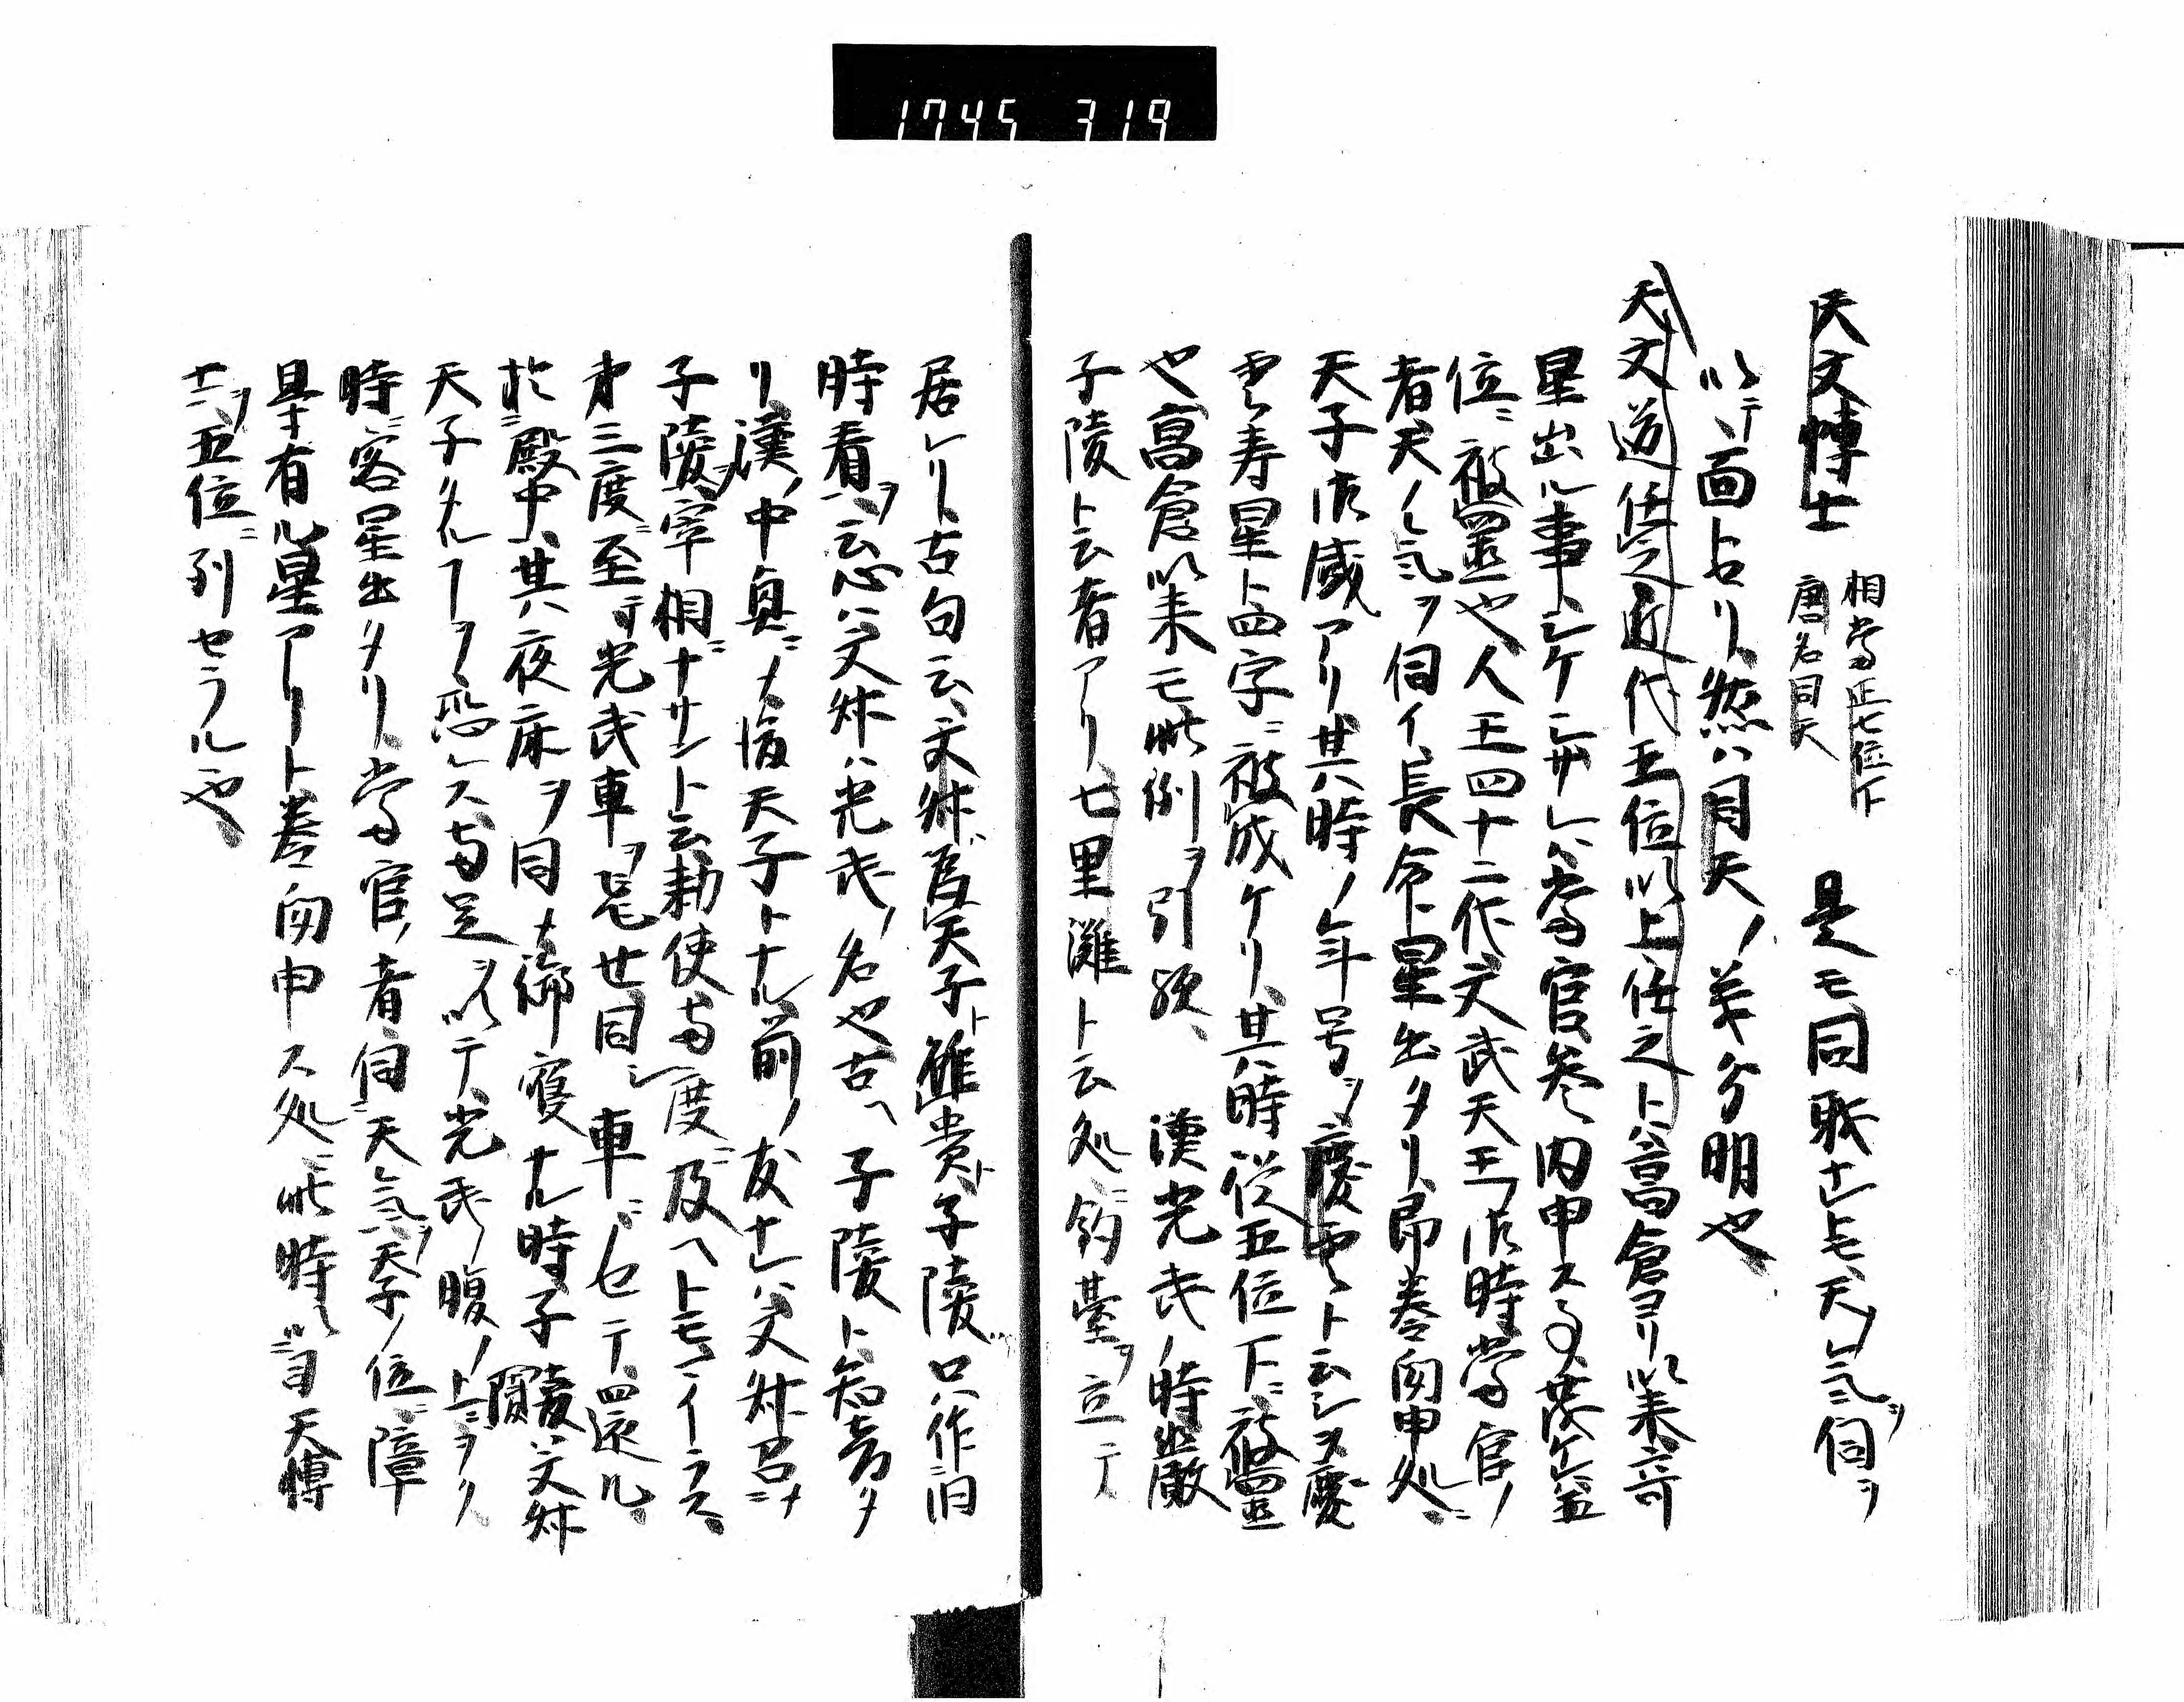 1745 319
天文博士 相当正七位下 唐名司天 是モ同職ナレ𪜈天ノ気ヲ伺ヲ
以テ面トセリ然ハ司天ノ義分明也
天文道任之近代五位以上任之トハ高倉ヨリ以来奇
星出ル事シケケレハ当官参内申ス
位ニ被置也人王四十二代文武天王御時当官ノ
者天ノ気ヲ伺イ長命星出タリ即奏聞申処ニ
天子御感アリ其時ノ年号ヲ慶雲ト云シヲ慶
雲寿星ト四字ニ被成ケリ其時従五位下ニ被置
也高倉以来モ此例ヲ引歟 漢光武ノ時厳
子陵ト云者アリ七里灘ト云処ニ釣臺ヲ立テ
居レリ古句云文叔為天子雖貴子陵只作旧
時看ヲ云心ハ文叔ハ光武ノ名也古ヘ子陵ト知音タ
リ漢ノ中興ニ天子トナル前ノ友ナレハ文叔召ニナ
子陵ヲ宰相ニナサント云勅使両度ニ及ヘトモイラス
才三度ニ至テ光武車ヲ 同シ車ニノセテ還ル
於殿中其夜床ヲ同 御寝ナル時子陵ハ文叔
天子タルヿヲ恐レス両足ヲ以テ光武ノ腹ノ上ニヲク
時ニ客星出タリ当官ノ者伺天気ヲ天子ノ位ニ障
是ナ有ル星アリト奏聞申ス処ニ此時ニ司天博
士ヲ五位ニ列セラルヽ也